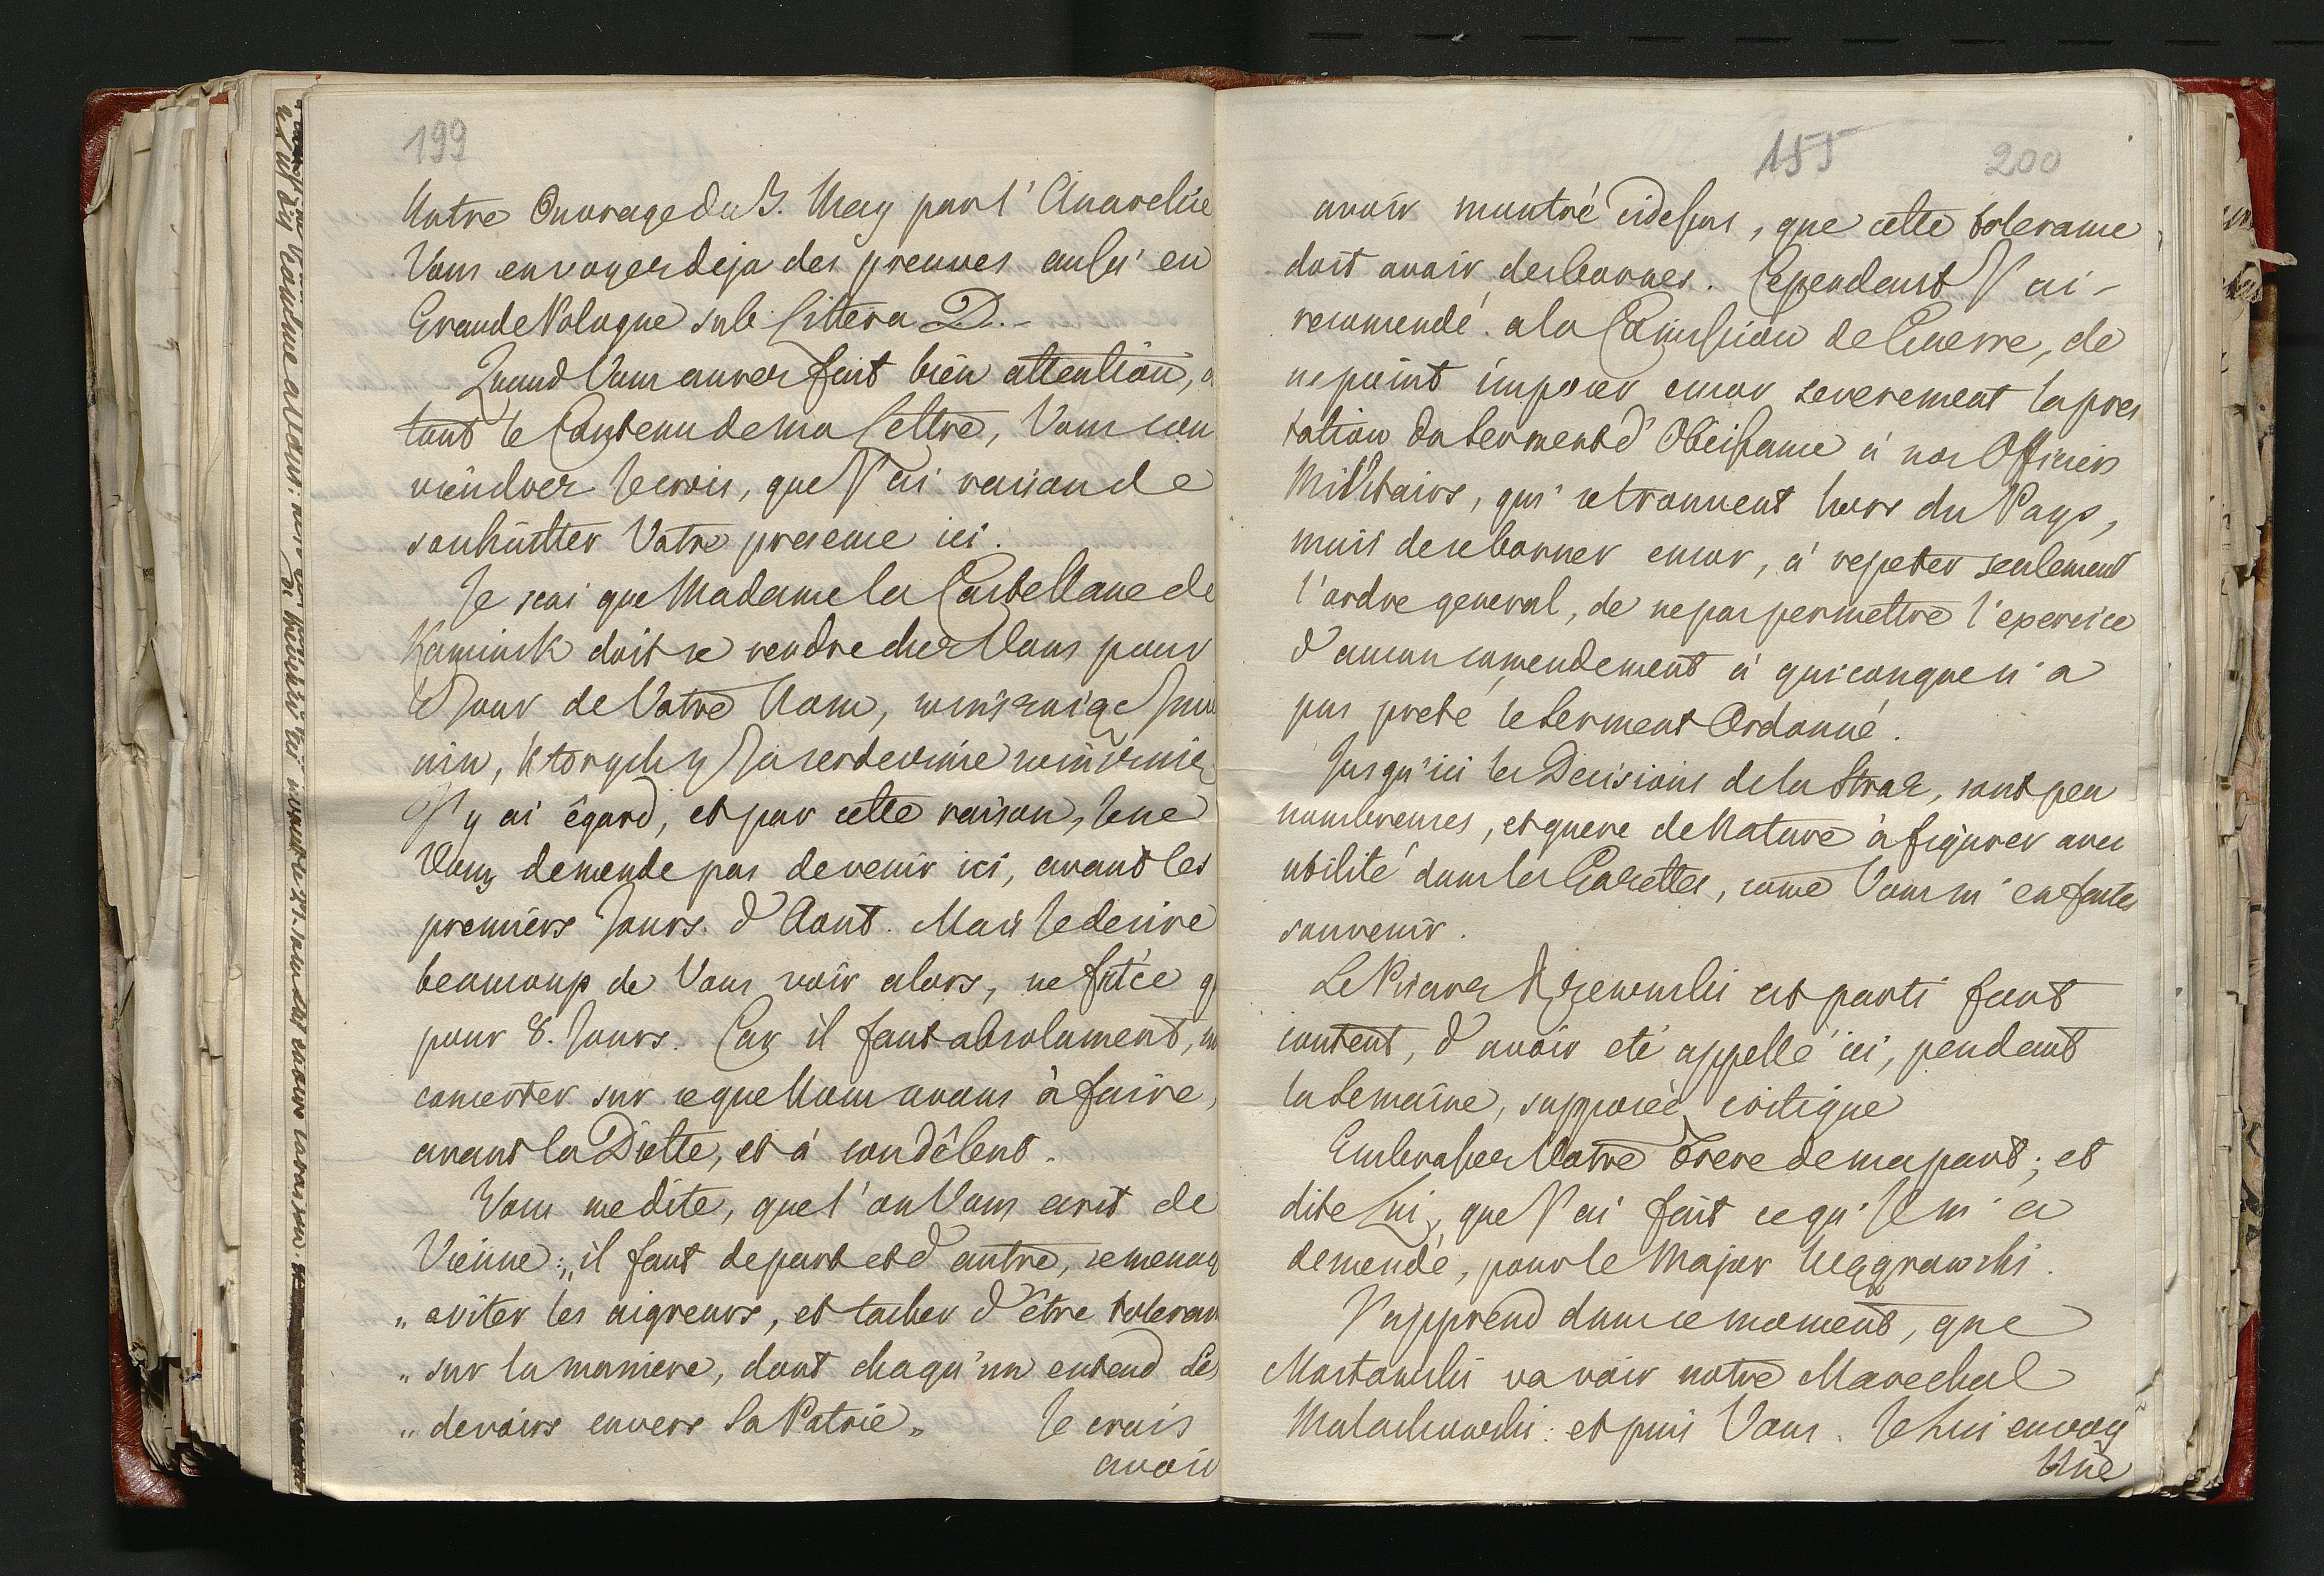 199
Notre Ouvrage du 3. May par l'Anarchie
Vous en voyez deja des preuves aussi en
Grande Pologne sub Littera D.-
Quand Vous aurez fait bien attention, a
tout le Contenu de ma Lettre, Vous con
viendrez Je crois, que J'ai raison de
souhaitter Votre presence ici.
Je scai que Madame la Castellane de
Kaminsk doit se rendre chez Vous pour
le Jour de Votre Nom, winszuiąc
nin, których y Ja serdecznie winszuie
J'y ai êgard, et par cette raison, Je ne
Vous demende pas de venir ici, avant les
premiers Jours d'Aout. Mais Je desire
beaucoup de Vous voir alors, ne fut ce q
pour 8. Jours. Car il faut absolument,
concerter sur ce que Nous avons à faire,
avant la Diette, et à son début.
Vous me dite, que l'on Vous ecrit de
Vienne: „il faut de part et d'autre, se menag
„ eviter les aigreurs, et tacher d'être toleran
„ sur la maniere, dont chaqu'un entend Les
„ devoirs envers Sa Patrie„ Je crois
avoir
155 200
avoir montré cidessus, que cette tolerance
doit avoir des bornes. Cependant J'ai-
recomendé a la Comission de Guerre, de
ne point imposer encor severement la pres
tation du Serment d'Obeissance à nos Officiers
Militairs, qui se trouvent hors du Pays,
mais de se borner encor, à repeter seulement
l'ordre general, de ne pas permettre l'exercice
d'aucun comendement à quiconque n'a
pas preté le Serment Ordonné.
Jusqu'ici les Decisions de la Straz, sont peu
nombreuses, et guere de Nature à figurer avec
utilité dans les Gazettes, come Vous m'en faites
souvenir.
Le Pisarz Rzewuski est parti fort
content, d'avoir eté appellé ici, pendant
la Semaine, supposée critique
Embrassez Votre Frere de ma part; et
dite Lui, que J'ai fait ce qu'Il m'a
demendé, pour le Major Węgrowski.
J'apprend dans ce moment, que
Mostowski va voir notre Marechal
Malachowski: et puis Vous. Je Lui envoy
Une